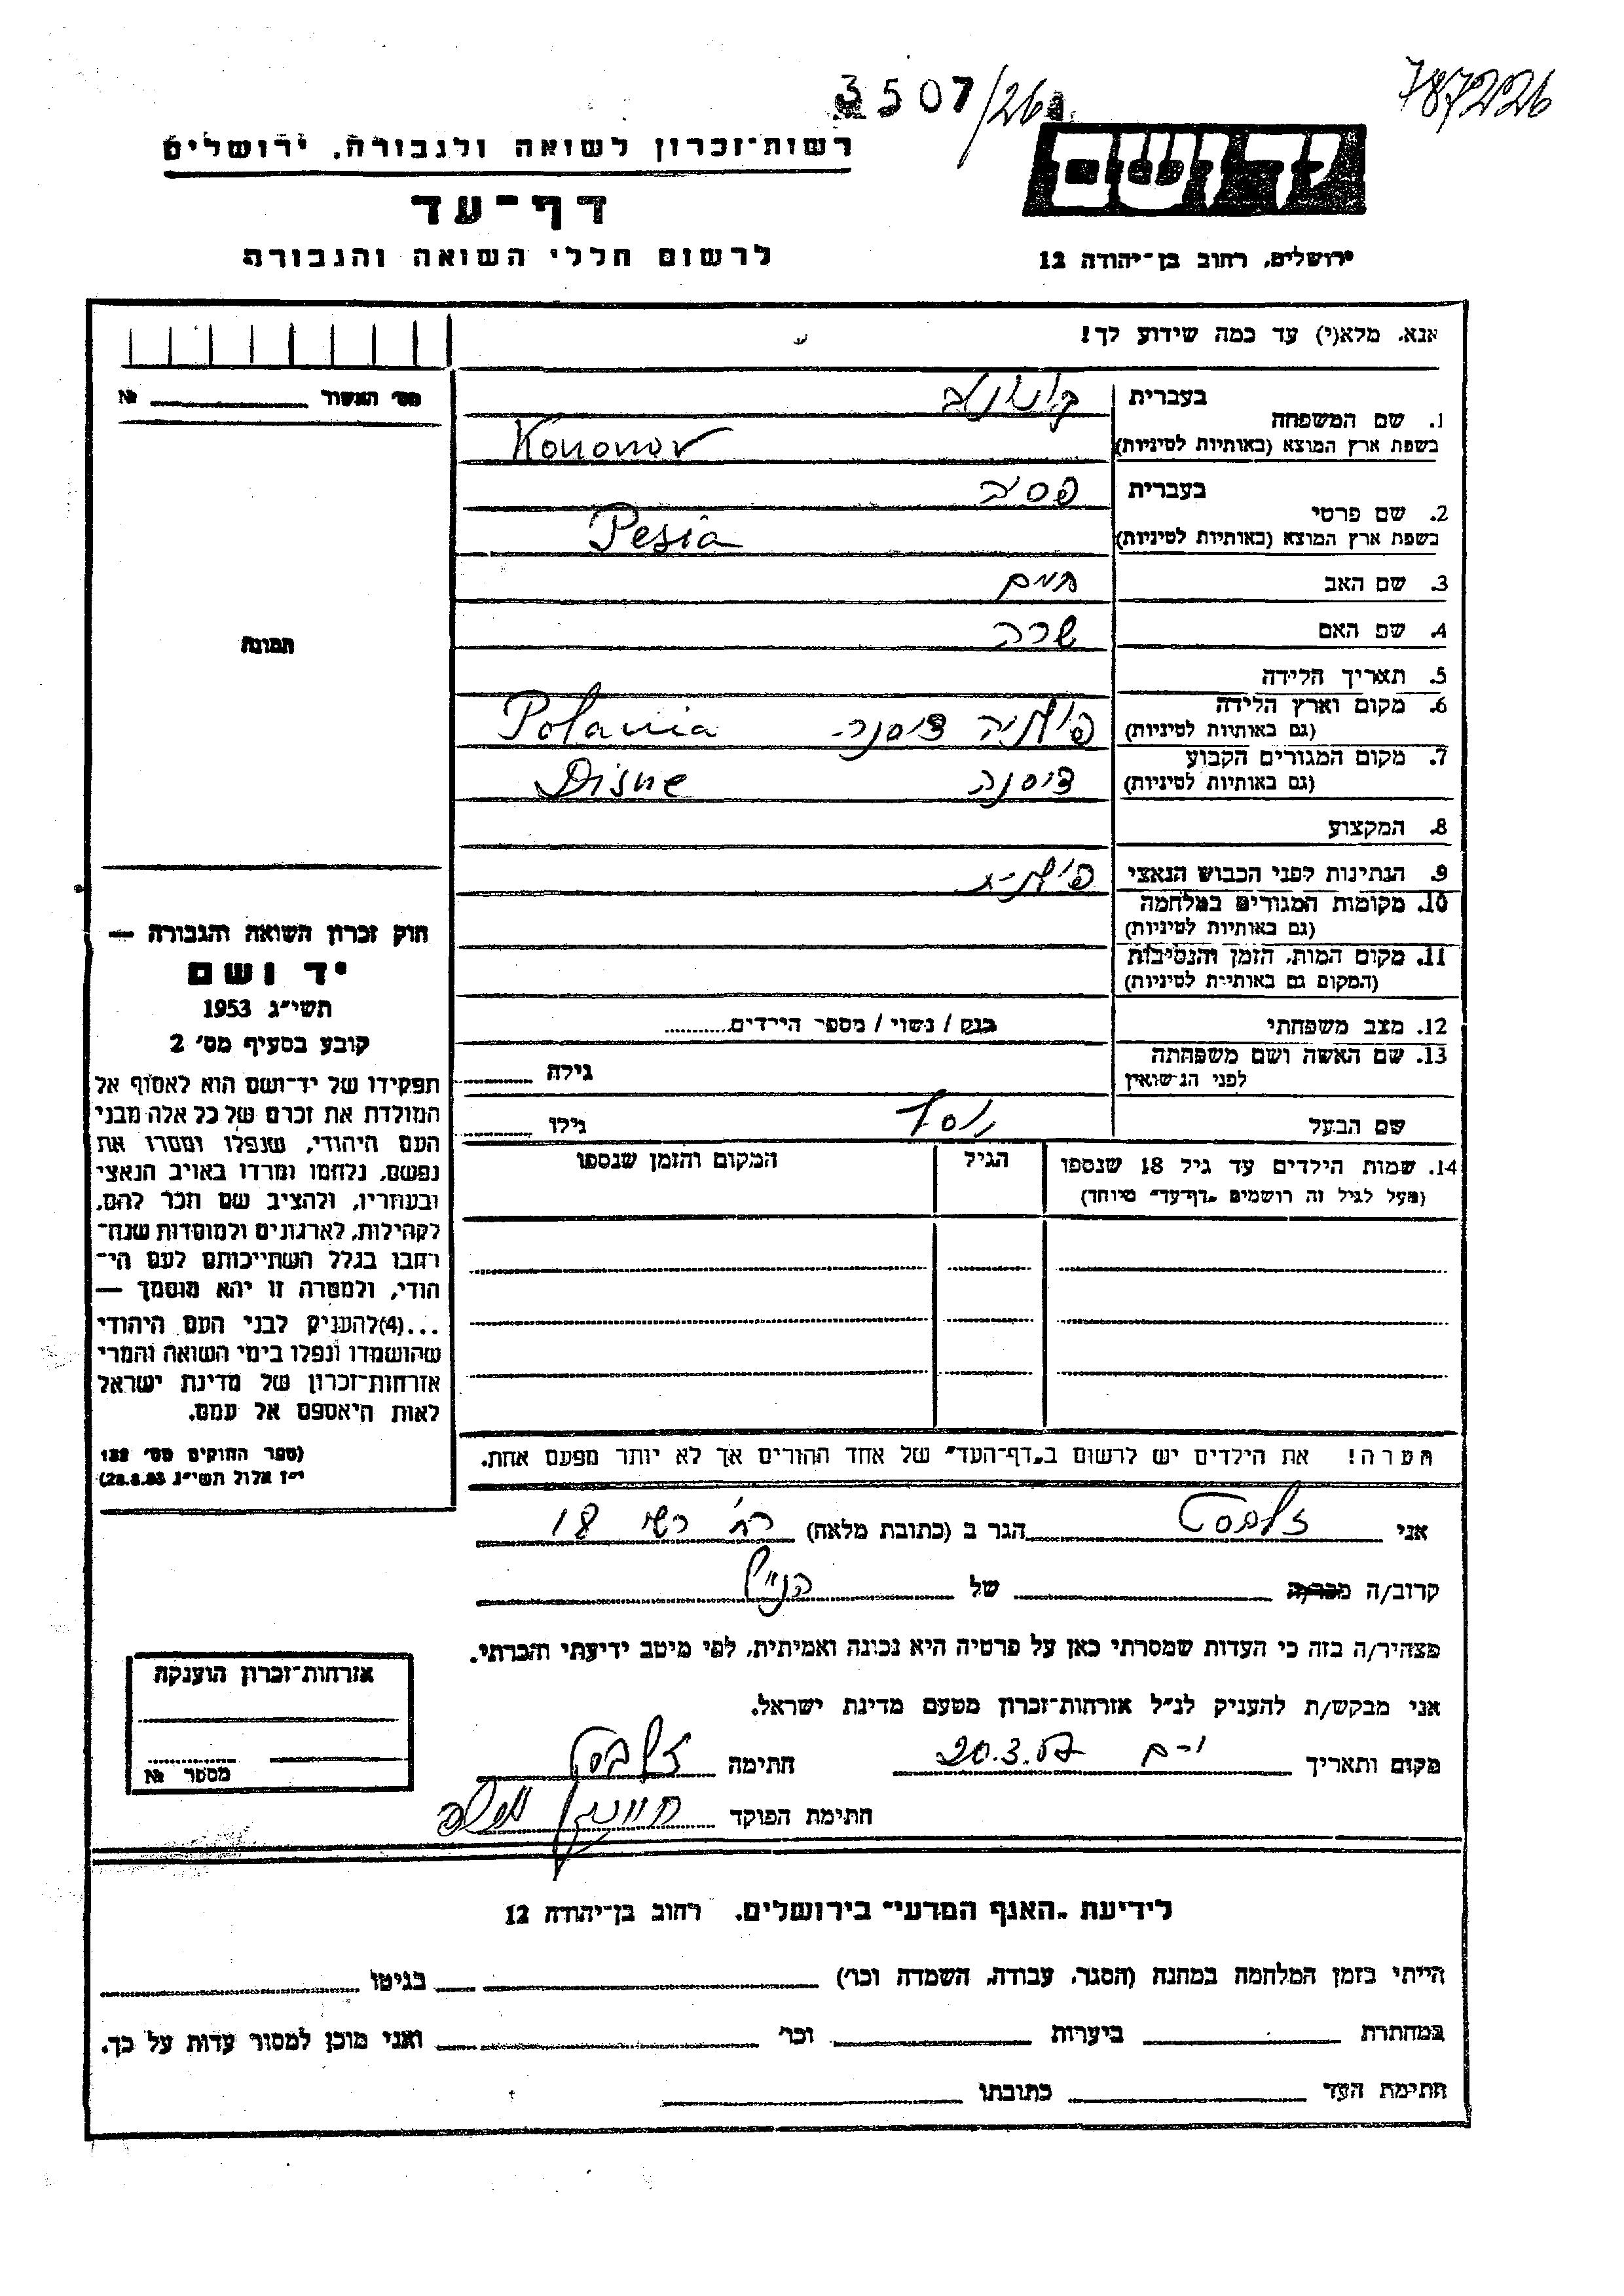 3507/26
787226
רשות-זכרון לשואה ולגבורה, ירושלים
ידושם
דף-עד
לרשום חללי השואה והגבורה
ירושלים, רחוב בן-יהודה 12
אנא, מלא(י) עד כמה שידוע לך!
מס' האשור № 
1. שם המשפחה
בעברית
בשפת ארץ המוצא (באותיות לטיניות)
Kononov
2. שם פרטי
בעברית
בשפת ארץ המוצא (באותיות לטיניות)
פסיה
Pesia
3. שם האב חיים
4. שם האם שרה
5. תאריך הלידה
6. מקום וארץ הלידה
(גם באותיות לטיניות)
פולניה דיסנה Polania
7. מקום המגורים הקבוע
(גם באותיות לטיניות)
דיסנה Disne
8. המקצוע
9. הנתינות לפני הכבוש הנאצי
10. מקומות המגורים במלחמה
(גם באותיות לטיניות)
11. מקום המות, הזמן והנסיבות
(המקום גם באותיות לטיניות)
12. מצב משפחתי
רווק / נשוי / מספר הילדים
13. שם האשה ושם משפחתה
לפני הנישואין
גילה
שם הבעל יוסף גילו
14. שמות הילדים עד גיל 18 שנספו
(מעל לגיל זה רושמים "דף-עד" מיוחד)
הגיל
המקום והזמן שנספו
תמונה
חוק זכרון השואה והגבורה —
יד ושם
תשי"ג 1953
קובע בסעיף מס' 2
תפקידו של יד-ושם הוא לאסוף אל
המולדת את זכרם של כל אלה מבני
העם היהודי, שנפלו ומסרו את
נפשם, נלחמו ומרדו באויב הנאצי
ובעוזריו, ולהציב שם וזכר להם,
לקהילות, לארגונים ולמוסדות שנח-
רבו בגלל השתייכותם לעם הי-
הודי, ולמטרה זו יהא מוסמך —
...(4)להעניק לבני העם היהודי
שהושמדו ונפלו בימי השואה והמרי
אזרחות-זכרון של מדינת ישראל
לאות היאספם אל עמם.
(ספר החוקים מס' 132
י"ז אלול תשי"ג 28.8.53)
הערה! את הילדים יש לרשום ב"דף-העד" של אחד ההורים אך לא יותר מפעם אחת.
אני הגר ב (כתובת מלאה) רח' רשי 18
קרוב/ה מכר/ה של הנ"ל
מצהיר/ה בזה כי העדות שמסרתי כאן על פרטיה היא נכונה ואמיתית, לפי מיטב ידיעתי והכרתי.
אני מבקש/ת להעניק לנ"ל אזרחות-זכרון מטעם מדינת ישראל.
מקום ותאריך י-ם 20.3.57 חתימה
חתימת הפוקד
אזרחות-זכרון הוענקה
מספר №
לידיעת "האגף המדעי" בירושלים, רחוב בן-יהודה 12
הייתי בזמן המלחמה במחנה (הסגר, עבודה, השמדה וכו') בגיטו
במחתרת ביערות וכו' ואני מוכן למסור עדות על כך.
חתימת העד כתובתו